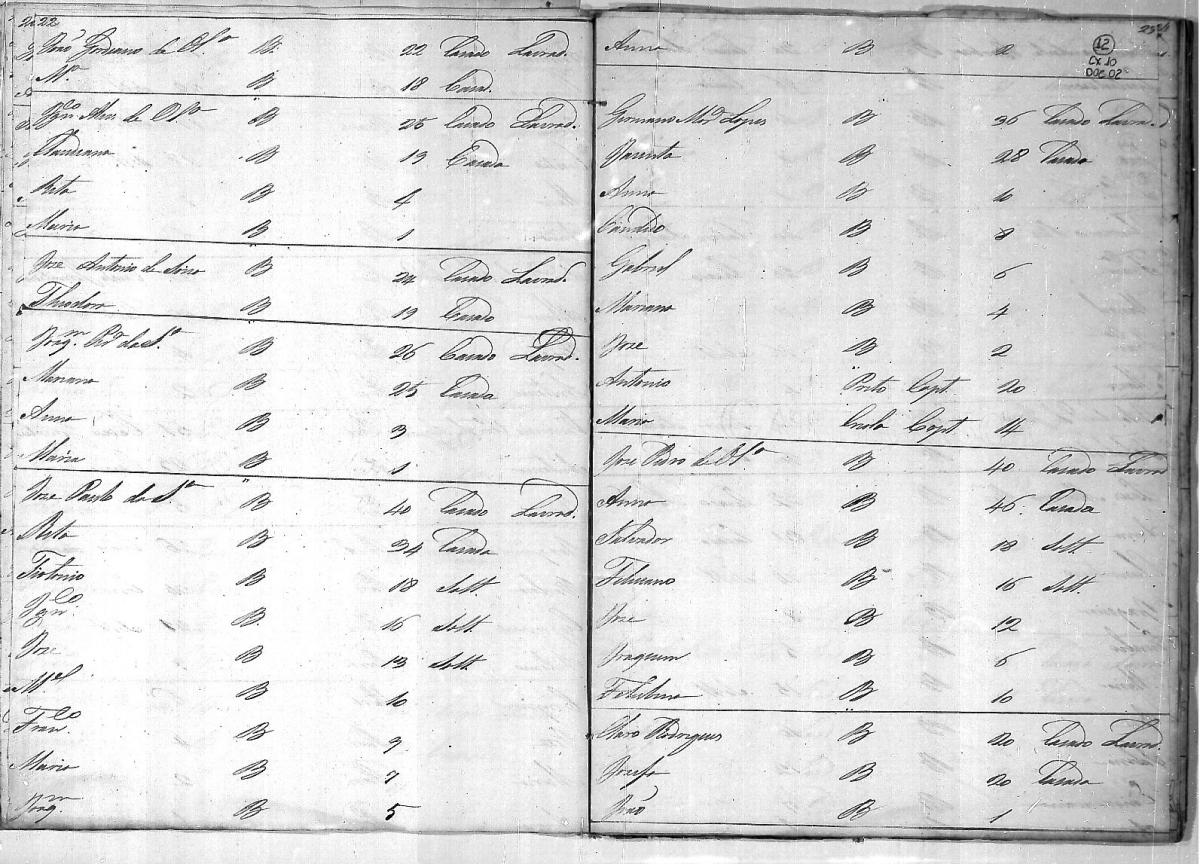 22
João Gordiano de Olª B. 22 Casado Lavrad.
Mª B 18 Casad.
Ignco Alvs de Olª B 25 Casado Lavrad.
B 19 Casada
Rita B 4
Maria B 1
Joze Antonio de B 24 Casado Lavrad.
Theodora B 19 Casada
Joaqm da Sª B 26 Casado Lavrad.
Mariana B 25 Casada
Anna B 3
Maria B 1
Joze Paulo da Sª B 40 Casado Lavrad.
Rita B 34 Casada
Tiotonio B 18 Solt.
Ignco B 16 Solt.
Joze B 13 Solt.
Mel B 10
Franco B 9
Maria B 7
Joaqm B 5
12
CX 10
DOC 02
Anna B 2
Germano Lopes B 36 Casado Lavrad.
Jacinta B 28 Casada
Anna B 10
Candido B 8
Gabriel B 6
Mariana B 4
Joze B 2
Antonio Preto Capt. 20
Maria Criola Capt. 14
Joze Pedro de Olª B 40 Casado Lavrad
Anna B 46 Casada
Salvador B 18 Solt
Feliciano B 16 Solt.
Joze B 12
Joaquim B 6
B 10
Claro Rodrigues B 20 Casado Lavrad
Jozefa B 20 Casada
João B 1